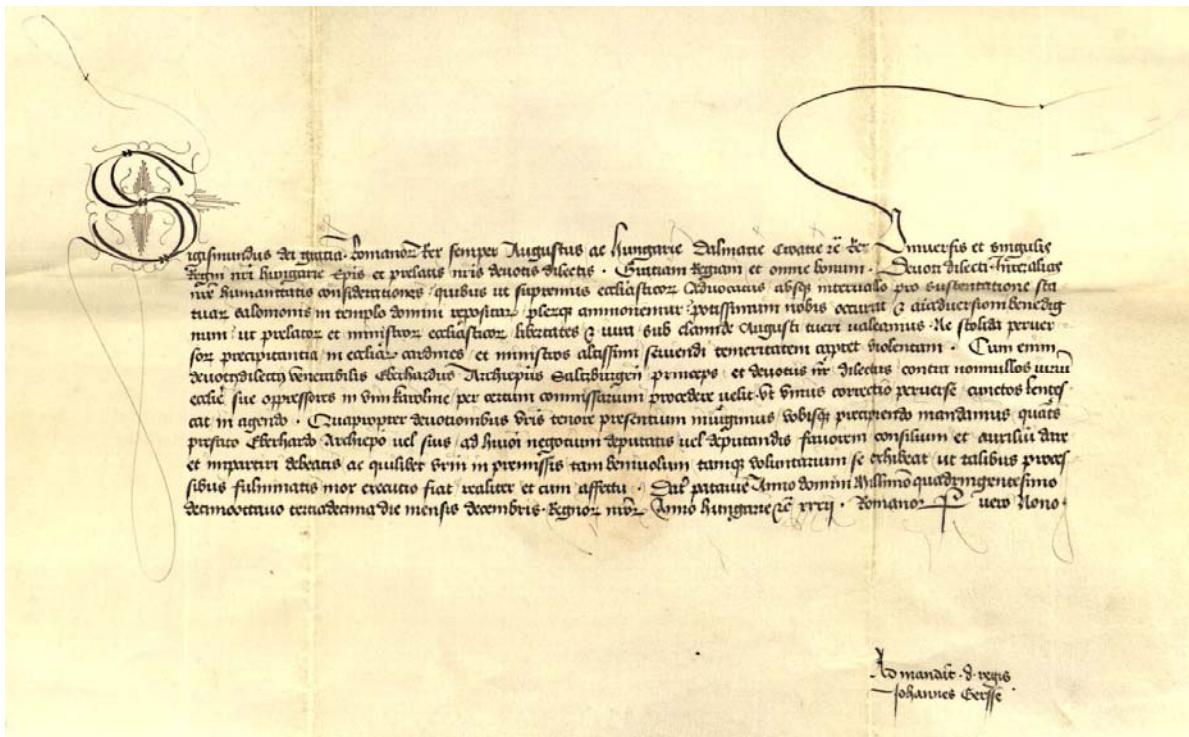 Sigismundus dei gratia Romanor Rex semper Augustus ac Hungarie Dalmatie Croatie rc Rex Universis et singulis
Regni nri Hungarie Epis et prelatis nris devotis dilectis . Gratiam Regiam et omne bonum . Devoti dilecti . Inter alias
nre humanitatis considerationes quibus ut supremus eccliasticor Advocatus absq intervallo pro sustentatione sta
tuar Salomonis in templo domini repositar plerq ammonemur potissimum nobis occurrit benedig
num ut prelator et ministror eccliasticor libertates et iura sub clamide Augusti tueri valeamus . Ne stolida perver
sor precipitantia in eccliar cardines et ministros altissimi seviendi temeritatem captet violentam . Cum enim
venerabilis Eberhardus Archiepus Salzburgen princeps et devotus nr dilectus contra nonnullos
ecclie sue oppressores in vim Karoline per certum commissarium procedere velit ut unius correctio perverse cunctos
cat in agendo . Quapropter devotionibus vris tenore presentium vobisq precipiendo mandamus quats
prefato Eberhardo Archiepo vel suis ad negotium deputatis vel deputandis favorem consilium et auxiliu dare
et impartiri debeatis ac quilibet vrm in premissis tam benivolum tamq voluntarium se exhibeat ut talibus proces
sibus fulminatis mox executio fiat realiter et cum affectu . Dat patavie Anno domini Millesimo quadringentesimo
decimooctavo terciadecima die mensis decembris . Regnor nror Anno Hungarie rc xxxii . Romanor vero Nono .
Ad mandat . d . regis
Johannes Gersse